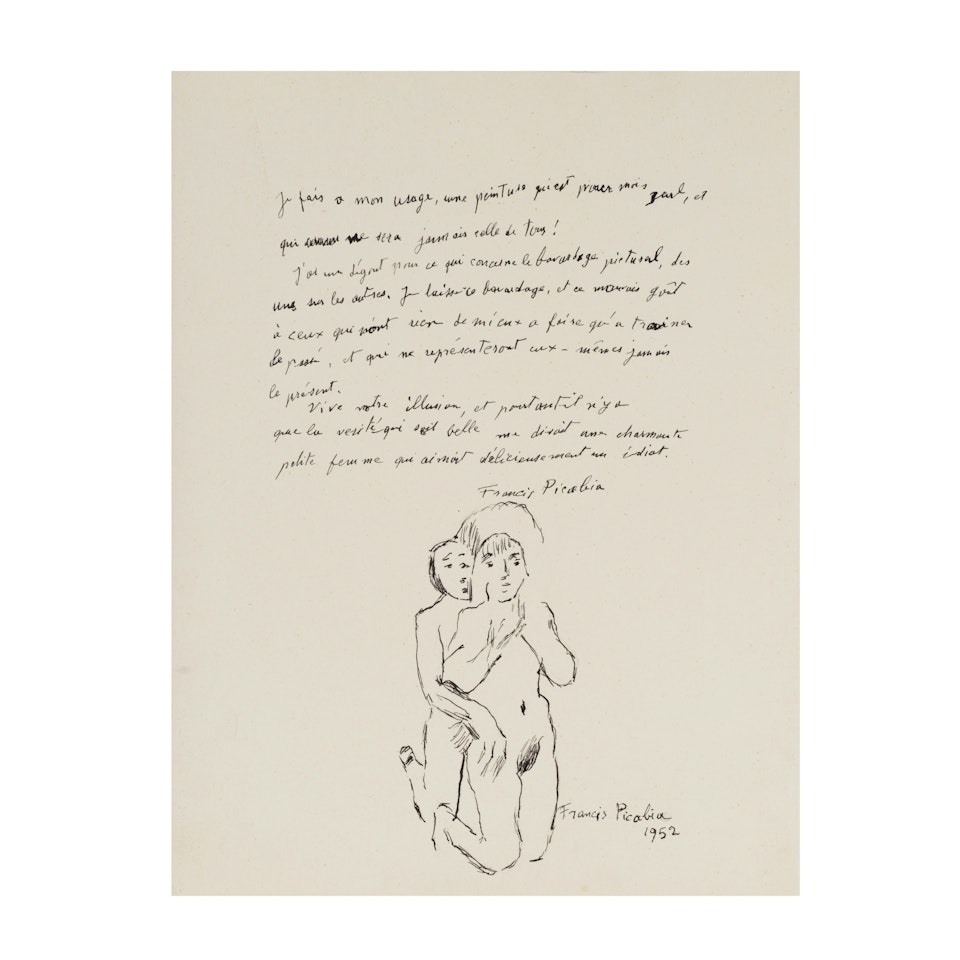 Je fais a mon usage, une peinture qui est pour moi seul, et
qui ne sera jamais celle de tous !
J'ai un dégout pour ce qui concerne le bavardage pictural, des
uns sur les autres. Je laisse ce bavardage, et ce mauvais goût
à ceux qui n'ont rien de mieux a faire qu'a trainer
le passé, et qui ne représenteront eux-mêmes jamais
le présent.
Vive votre illusion, et pourtant il n'y a
que la verité qui soit belle me disait une charmante
petite femme qui aimait délicieusement un idiot.
Francis Picabia
Francis Picabia
1952